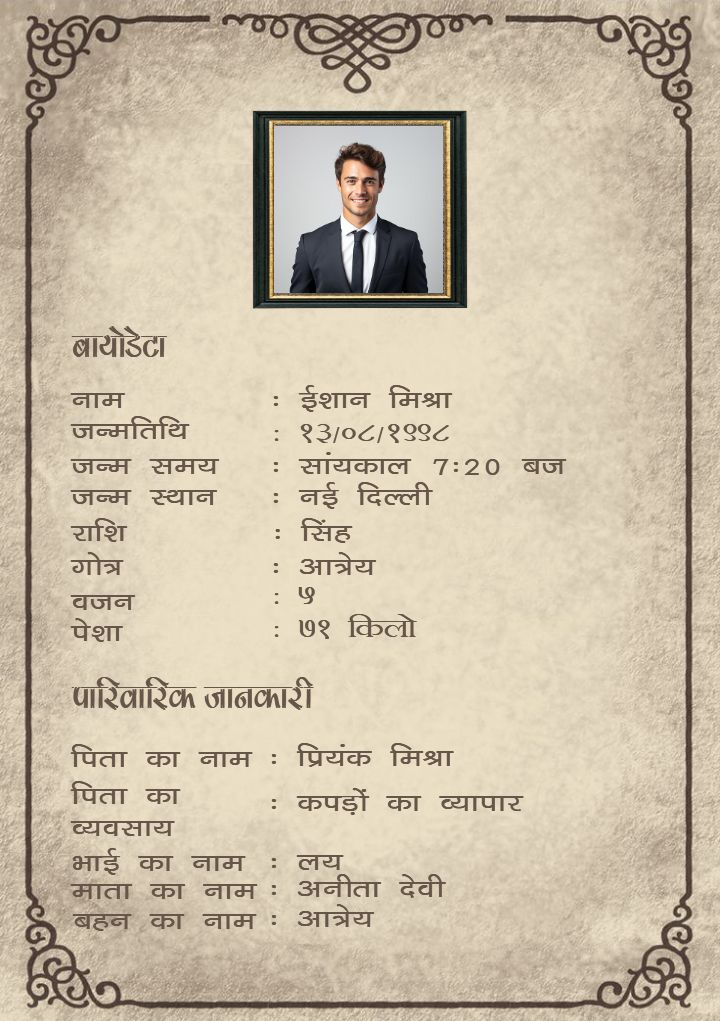 बायोडेटा
नाम : ईशान मिश्रा
जन्मतिथि : १३/०८/१९९८
जन्म समय : सांयकाल 7:20 बज
जन्म स्थान : नई दिल्ली
राशि : सिंह
गोत्र : आत्रेय
वजन : ५
पेशा : ७१ किलो
पारिवारिक जानकारी
पिता का नाम : प्रियंक मिश्रा
पिता का व्यवसाय : कपड़ों का व्यापार
भाई का नाम : लय
माता का नाम : अनीता देवी
बहन का नाम : आत्रेय